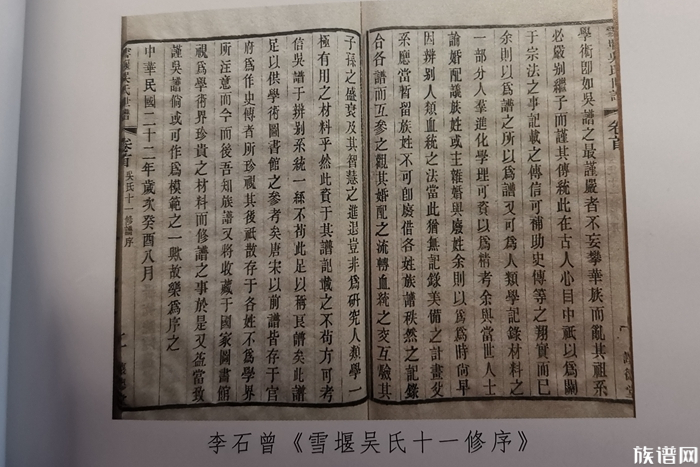 雪堰吳氏世譜
卷首
學術卽如吳譜之最謹嚴者不妄攀華族而亂其祖系
必嚴別繼子而謹其傳統此在古人心目中祇以爲關
于宗法之事記載之傳信可補助史傳等之翔實而已
余則以爲譜之所以爲譜又可爲人類學記錄材料之
一部分人羣進化學理可資以爲稽考余與當世人士
論婚配議廢姓或主雜婚興廢姓余則以爲爲時尚早
因辨别人類血統之法當此猶無記錄美備之計畫父
系應當暫留族姓不可卽廢借各姓族譜秩然之記錄
台各譜而互參之觀其婚配之流轉血統之交互驗其
子孫之盛衰及其智慧之進退豈非爲研究人類學一
極有用之材料乎然此資于其譜記載之不苟方可考
信吳譜于辨别系統一絲不茍此足以稱良譜矣此譜
足以供學術圖書館之參考矣唐宋以前譜皆存于官
府爲作史傳者所珍視其後祇散存于各姓不爲學界
所注意而今而後吾知族譜又將收藏于國家圖書館
視爲學術界珍貴之材料而修譜之事於是又益當致
謹吳譜倘或可作爲模範之一歟故樂爲序之
中華民國二十二年歲次癸酉八月
雪堰吳氏世譜
卷首
吳氏十一修譜序
李石曾《雪堰吴氏十一修序》
族谱网